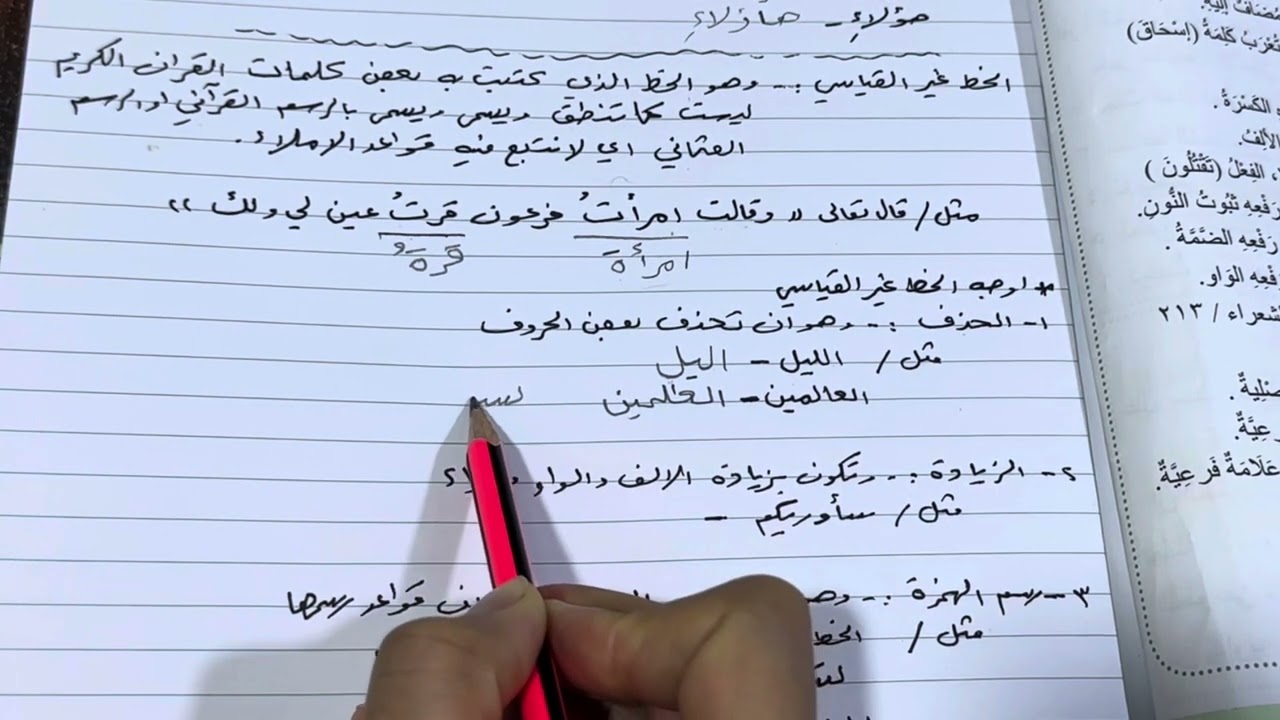 هؤلاءِ - هأؤلاءِ
الخط غير القياسي :- وهو الخط الذي تكتب به بعض كلمات القران الكريم
ليست كما تنطق ويسمى ويسمى بالرسم القرآني او الرسم
العثماني اي لا نتبع فيه قواعد الاملاء.
مثل / قال تعالى « وقالت امرأتُ فرعون قرتُ عين لي ولك »
امرأة قرةُ
* اوجه الخط غير القياسي
١- الحذف :- وهو ان تحذف بعض الحروف
مثل / الليل - اليل
العالمين - العلمين
٢- الزيادة :- وتكون بزيادة الالف والواو
مثل / سأوريكم -
٣- رسم الهمزة :- قواعد رسمها
مثل /
تُعْرَبُ كَلِمَةُ (اِسْحَاقَ)
الكَسْرَةُ.
الأَلِفُ.
الفِعْلُ (تَقْتُلُونَ)
رَفْعِهِ ثُبُوتُ النُّونِ.
رَفْعِهِ الضَّمَّةُ.
الوَاو.
٢١٣ /
عَلَامَةٌ فَرعِيَّةٌ.